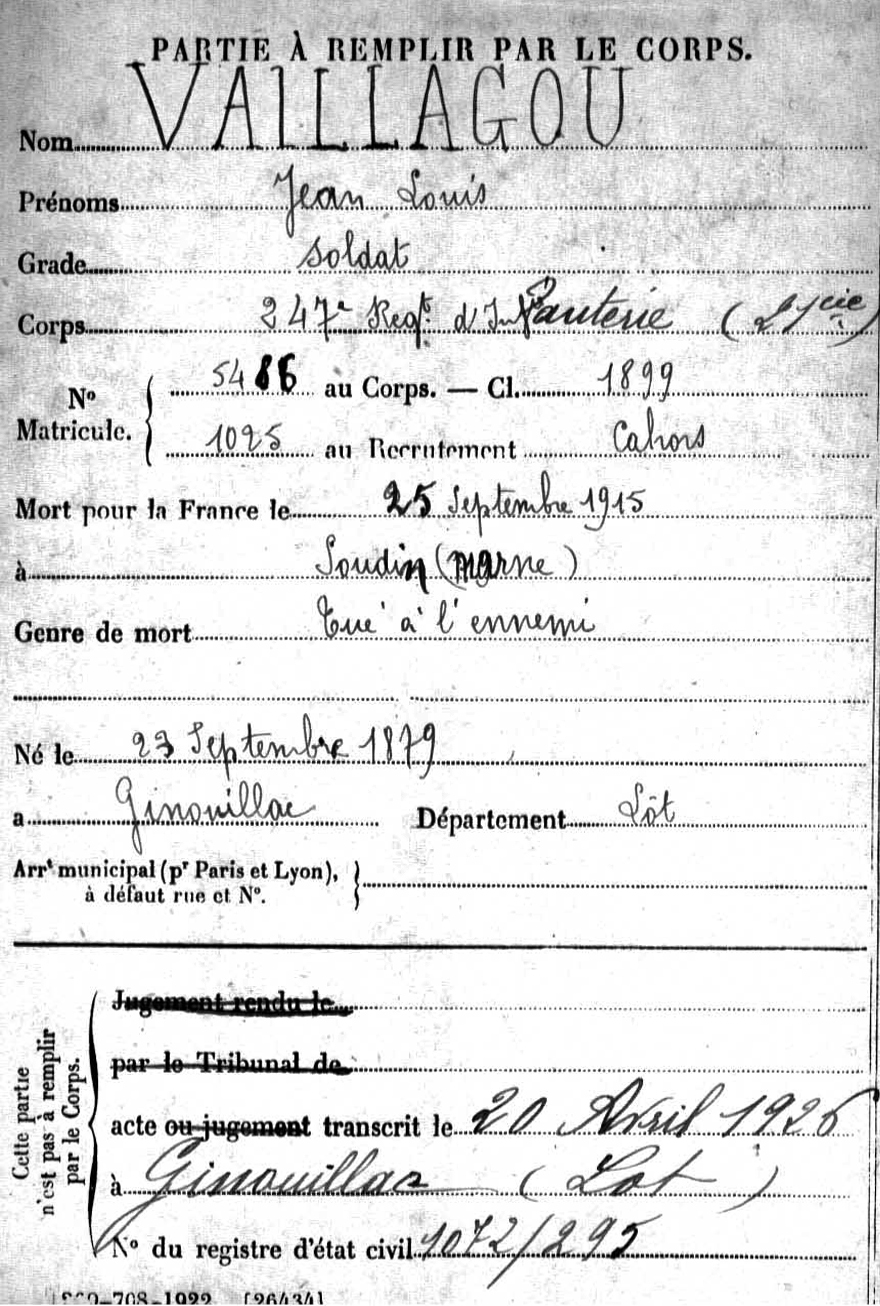 PARTIE À REMPLIR PAR LE CORPS.
Nom VAILLAGOU
Prénoms Jean Louis
Grade soldat
Corps 247e Regt. d'Infanterie (2 7 cie)
No Matricule. 5486 au Corps. — Cl. 1899
1025 au Recrutement Cahors
Mort pour la France le 25 Septembre 1915
à Soudin (marne)
Genre de mort Tué à l'ennemi
Né le 23 Septembre 1879
a Ginouillac Département Lôt
Arrt municipal (pr Paris et Lyon),
à défaut rue et No.
Cette partie n'est pas à remplir par le Corps.
Jugement rendu le
par le Tribunal de
acte ou jugement transcrit le 20 Avril 1926
à Ginouillac (Lot)
No du registre d'état civil 1072/295
708-1922. [26434]